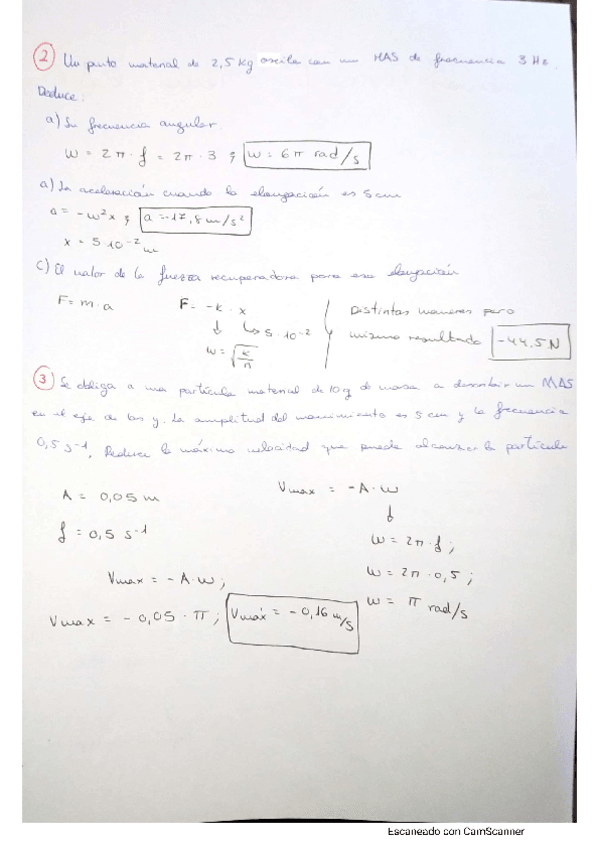 2 Un punto material de 2,5 Kg oscila con un MAS de frecuencia 3 Hz.
Deduce:
a) Su frecuencia angular
w = 2π · f = 2π · 3 ; w = 6π rad/s
a) La aceleración cuando la elongación es 5 cm
a = -w²x ; a = -17,8 m/s²
x = 5·10⁻² m
c) El valor de la fuerza recuperadora para esa elongación
F = m · a F = -k · x Distintas maneras pero
↓ ↳ 5·10⁻² mismo resultado -44,5 N
w = √(k/m)
3 Se obliga a una partícula material de 10 g de masa a describir un MAS
en el eje de las y. La amplitud del movimiento es 5 cm y la frecuencia
0,5 s⁻¹. Deduce la máxima velocidad que puede alcanzar la partícula
A = 0,05 m Vmax = -A·w
↓
f = 0,5 s⁻¹ w = 2π·f ;
Vmax = -A·w ; w = 2π·0,5 ;
Vmax = -0,05 · π ; Vmáx = -0,16 m/s w = π rad/s
Escaneado con CamScanner